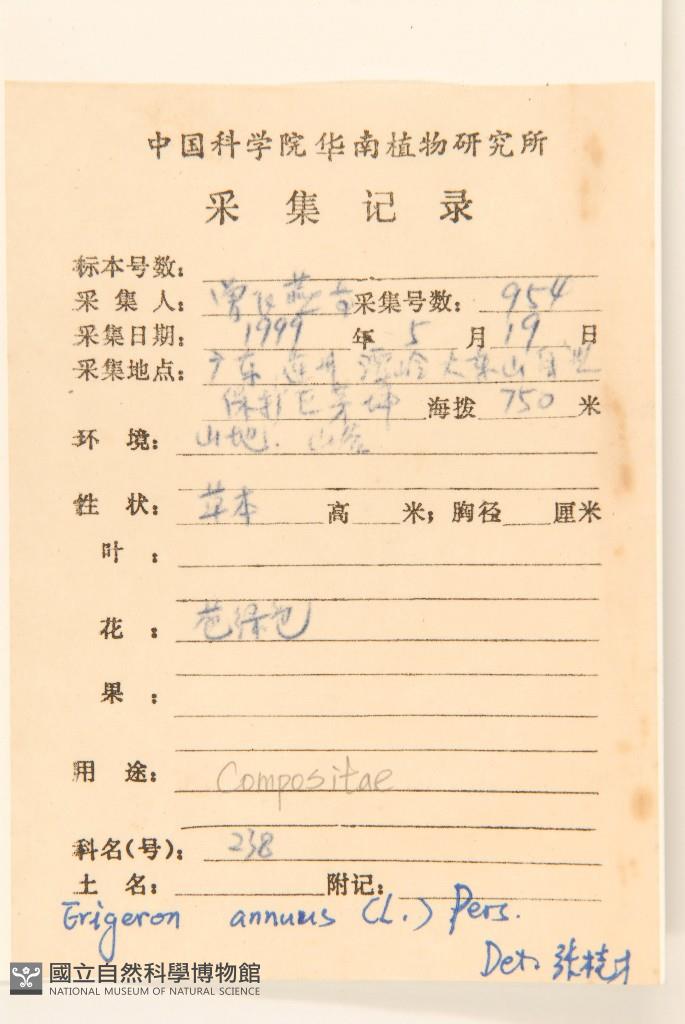 中国科学院华南植物研究所
采集记录
标本号数:
采集人: 曾飞燕 采集号数: 954
采集日期: 1999 年 5 月 19 日
采集地点: 广东连州潭岭大东山自然
保护区 海拨 750 米
环境: 山地. 山谷
性状: 草本 高 米; 胸径 厘米
叶:
花: 苞绿色
果:
用途: Compositae
科名(号): 238
土名: 附记:
Erigeron annuus (L.) Pers.
Det. 张桂才
國立自然科學博物館
NATIONAL MUSEUM OF NATURAL SCIENCE